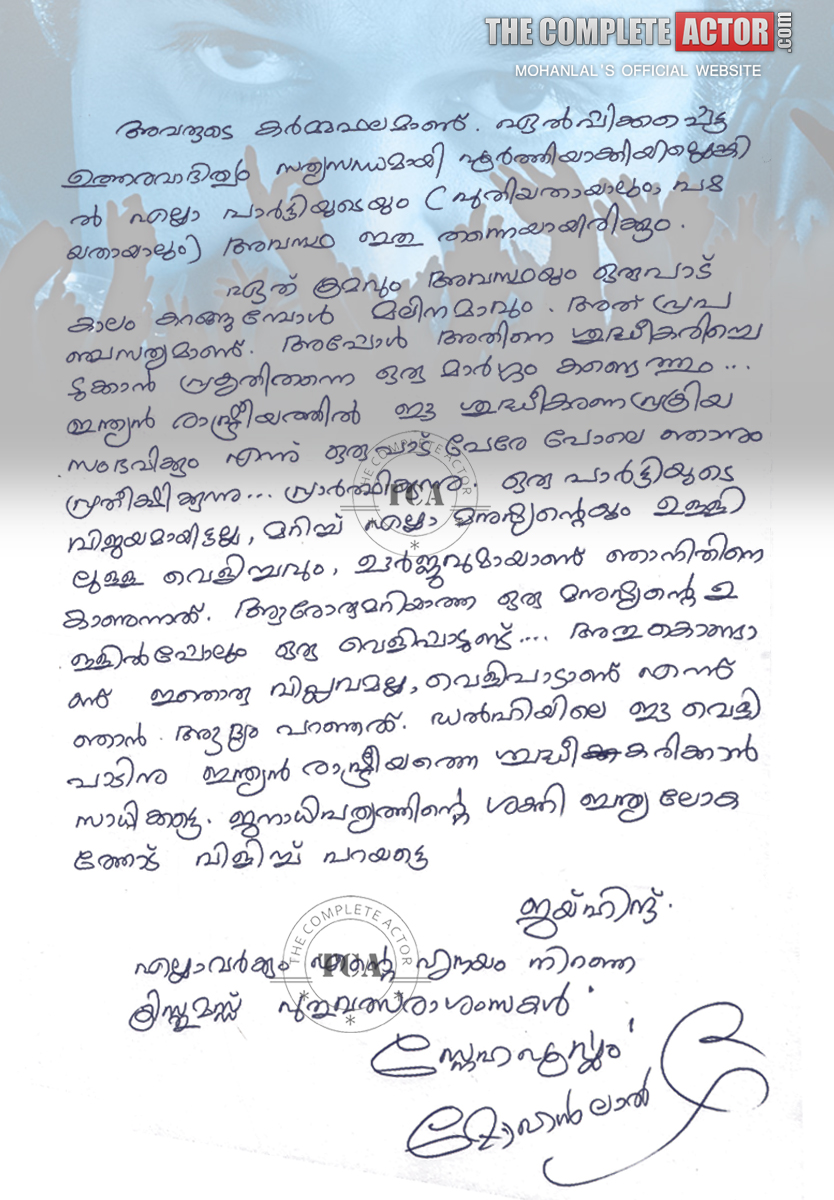 THE COMPLETE ACTOR.com
MOHANLAL'S OFFICIAL WEBSITE
അവരുടെ കർമ്മഫലമാണ്. ഏൽപ്പിക്കപ്പെട്ട
ഉത്തരവാദിത്വം സത്യസന്ധമായി പൂർത്തിയാക്കിയില്ലെങ്കി
ൽ എല്ലാ പാർട്ടിയുടെയും (പുതിയതായാലും, പഴ
യതായാലും) അവസ്ഥ ഇതു തന്നെയായിരിക്കും.
ഏത് ക്രമവും അവസ്ഥയും ഒരുപാട്
കാലം കറങ്ങുമ്പോൾ മലിനമാവും. അത് പ്രപ
ഞ്ചസത്യമാണ്. അപ്പോൾ അതിനെ ശുദ്ധീകരിച്ചെ
ടുക്കാൻ പ്രകൃതിതന്നെ ഒരു മാർഗ്ഗം കണ്ടെത്തും...
ഇന്ത്യൻ രാഷ്ട്രീയത്തിൽ ഈ ശുദ്ധീകരണപ്രക്രിയ
സംഭവിക്കും എന്ന് ഒരുപാട് പേരേ പോലെ ഞാനും
പ്രതീക്ഷിക്കുന്നു... പ്രാർത്ഥിക്കുന്നു. ഒരു പാർട്ടിയുടെ
വിജയമായിട്ടല്ല, മറിച്ച് എല്ലാ മനുഷ്യന്റെയും ഉള്ളി
ലുള്ള വെളിച്ചവും, ഊർജ്ജവുമായാണ് ഞാനിതിനെ
കാണുന്നത്. ആരോരുമറിയാത്ത ഒരു മനുഷ്യന്റെ ഉ
ള്ളിൽപ്പോലും ഒരു വെളിപ്പാടുണ്ട്.... അതുകൊണ്ടാ
ണ് ഇതൊരു വിപ്ലവമല്ല, വെളിപാടാണ് എന്ന്
ഞാൻ ആദ്യം പറഞ്ഞത്. ഡൽഹിയിലെ ഈ വെളി
പാടിനു ഇന്ത്യൻ രാഷ്ട്രീയത്തെ ശുദ്ധീകരിക്കാൻ
സാധിക്കട്ടെ. ജനാധിപത്യത്തിന്റെ ശക്തി ഇന്ത്യ ലോക
ത്തോട് വിളിച്ച് പറയട്ടെ
ജയ്ഹിന്ദ്.
എല്ലാവർക്കും എന്റെ ഹൃദയം നിറഞ്ഞ
ക്രിസ്തുമസ്സ് പുതുവത്സരാശംസകൾ
സ്നേഹപൂർവ്വം
മോഹൻലാൽ
THE COMPLETE ACTOR
TCA
THE COMPLETE ACTOR
TCA